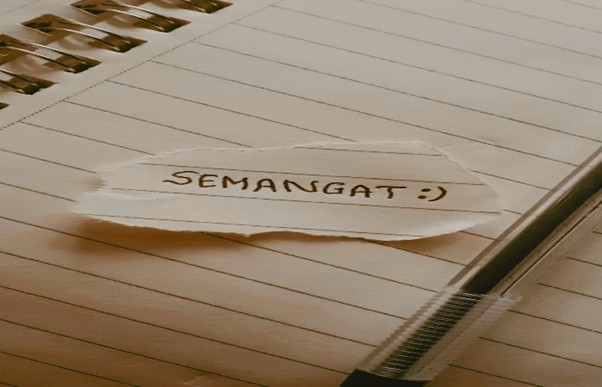 SEMANGAT :)